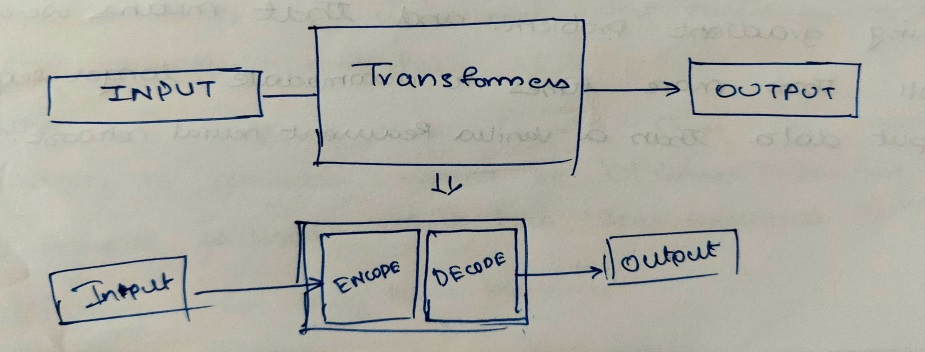 INPUT
Transformers
OUTPUT
Input
ENCODE
DECODE
Output